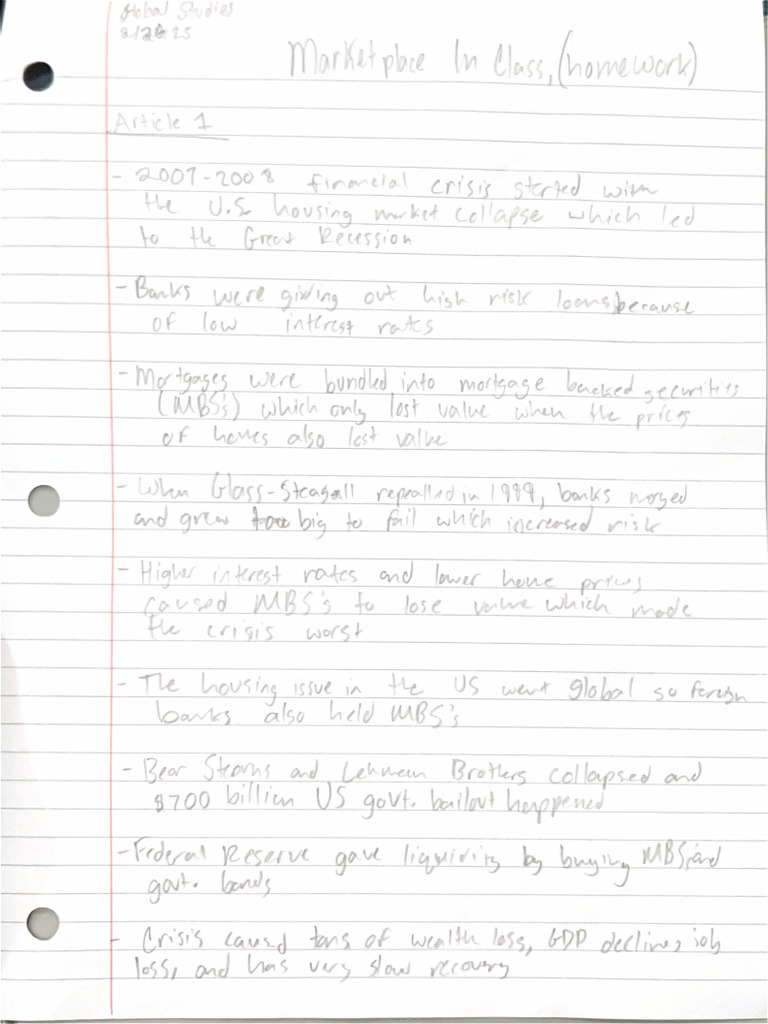 Global Studies
2/26 25
Marketplace In Class, (homework)
Article 1
- 2007-2008 financial crisis started with
the U.S. housing market collapse which led
to the Great Recession
- Banks were giving out high risk loans because
of low interest rates
- Mortgages were bundled into mortgage backed securities
(MBS's) which only lost value when the prices
of homes also lost value
- When Glass-Steagall repealled in 1999, banks merged
and grew too big to fail which increased risk
- Higher interest rates and lower home prices
caused MBS's to lose value which made
the crisis worst
- The housing issue in the US went global so foreign
banks also held MBS's
- Bear Stearns and Lehmean Brothers collapsed and
$700 billion US govt. bailout happened
- Federal Reserve gave liquidity by buying MBS, and
govt. bonds
- Crisis caused tons of wealth loss, GDP decline, job
loss, and has very slow recovery